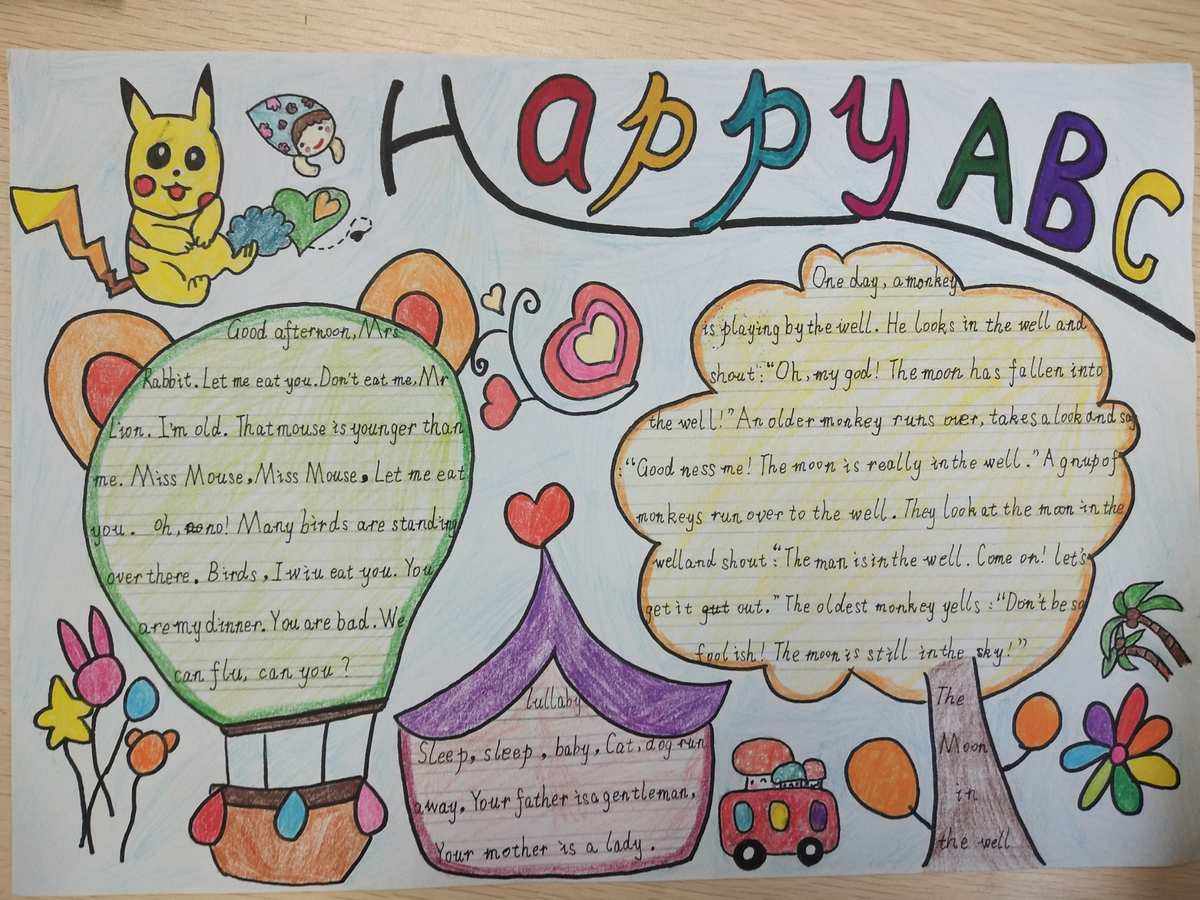 Happy ABC
Good afternoon, Mrs
Rabbit. Let me eat you. Don't eat me, Mr
Lion. I'm old. That mouse is younger than
me. Miss Mouse, Miss Mouse, Let me eat
you. Oh, no! Many birds are standing
over there. Birds, I wiu eat you. You
are my dinner. You are bad. We
can flu, can you?
lullaby
Sleep, sleep, baby, Cat, dog run
away. Your father is a gentleman,
Your mother is a lady.
One day, a monkey
is playing by the well. He looks in the well and
shout: "Oh, my god! The moon has fallen into
the well!" An older monkey runs over, takes a look and say
: "Good ness me! The moon is really in the well." A gnup of
monkeys run over to the well. They look at the moon in the
well and shout: "The man is in the well. Come on! let's
get it out." The oldest monkey yells: "Don't be so
foolish! The moon is still in the sky!"
The
Moon
in
the well